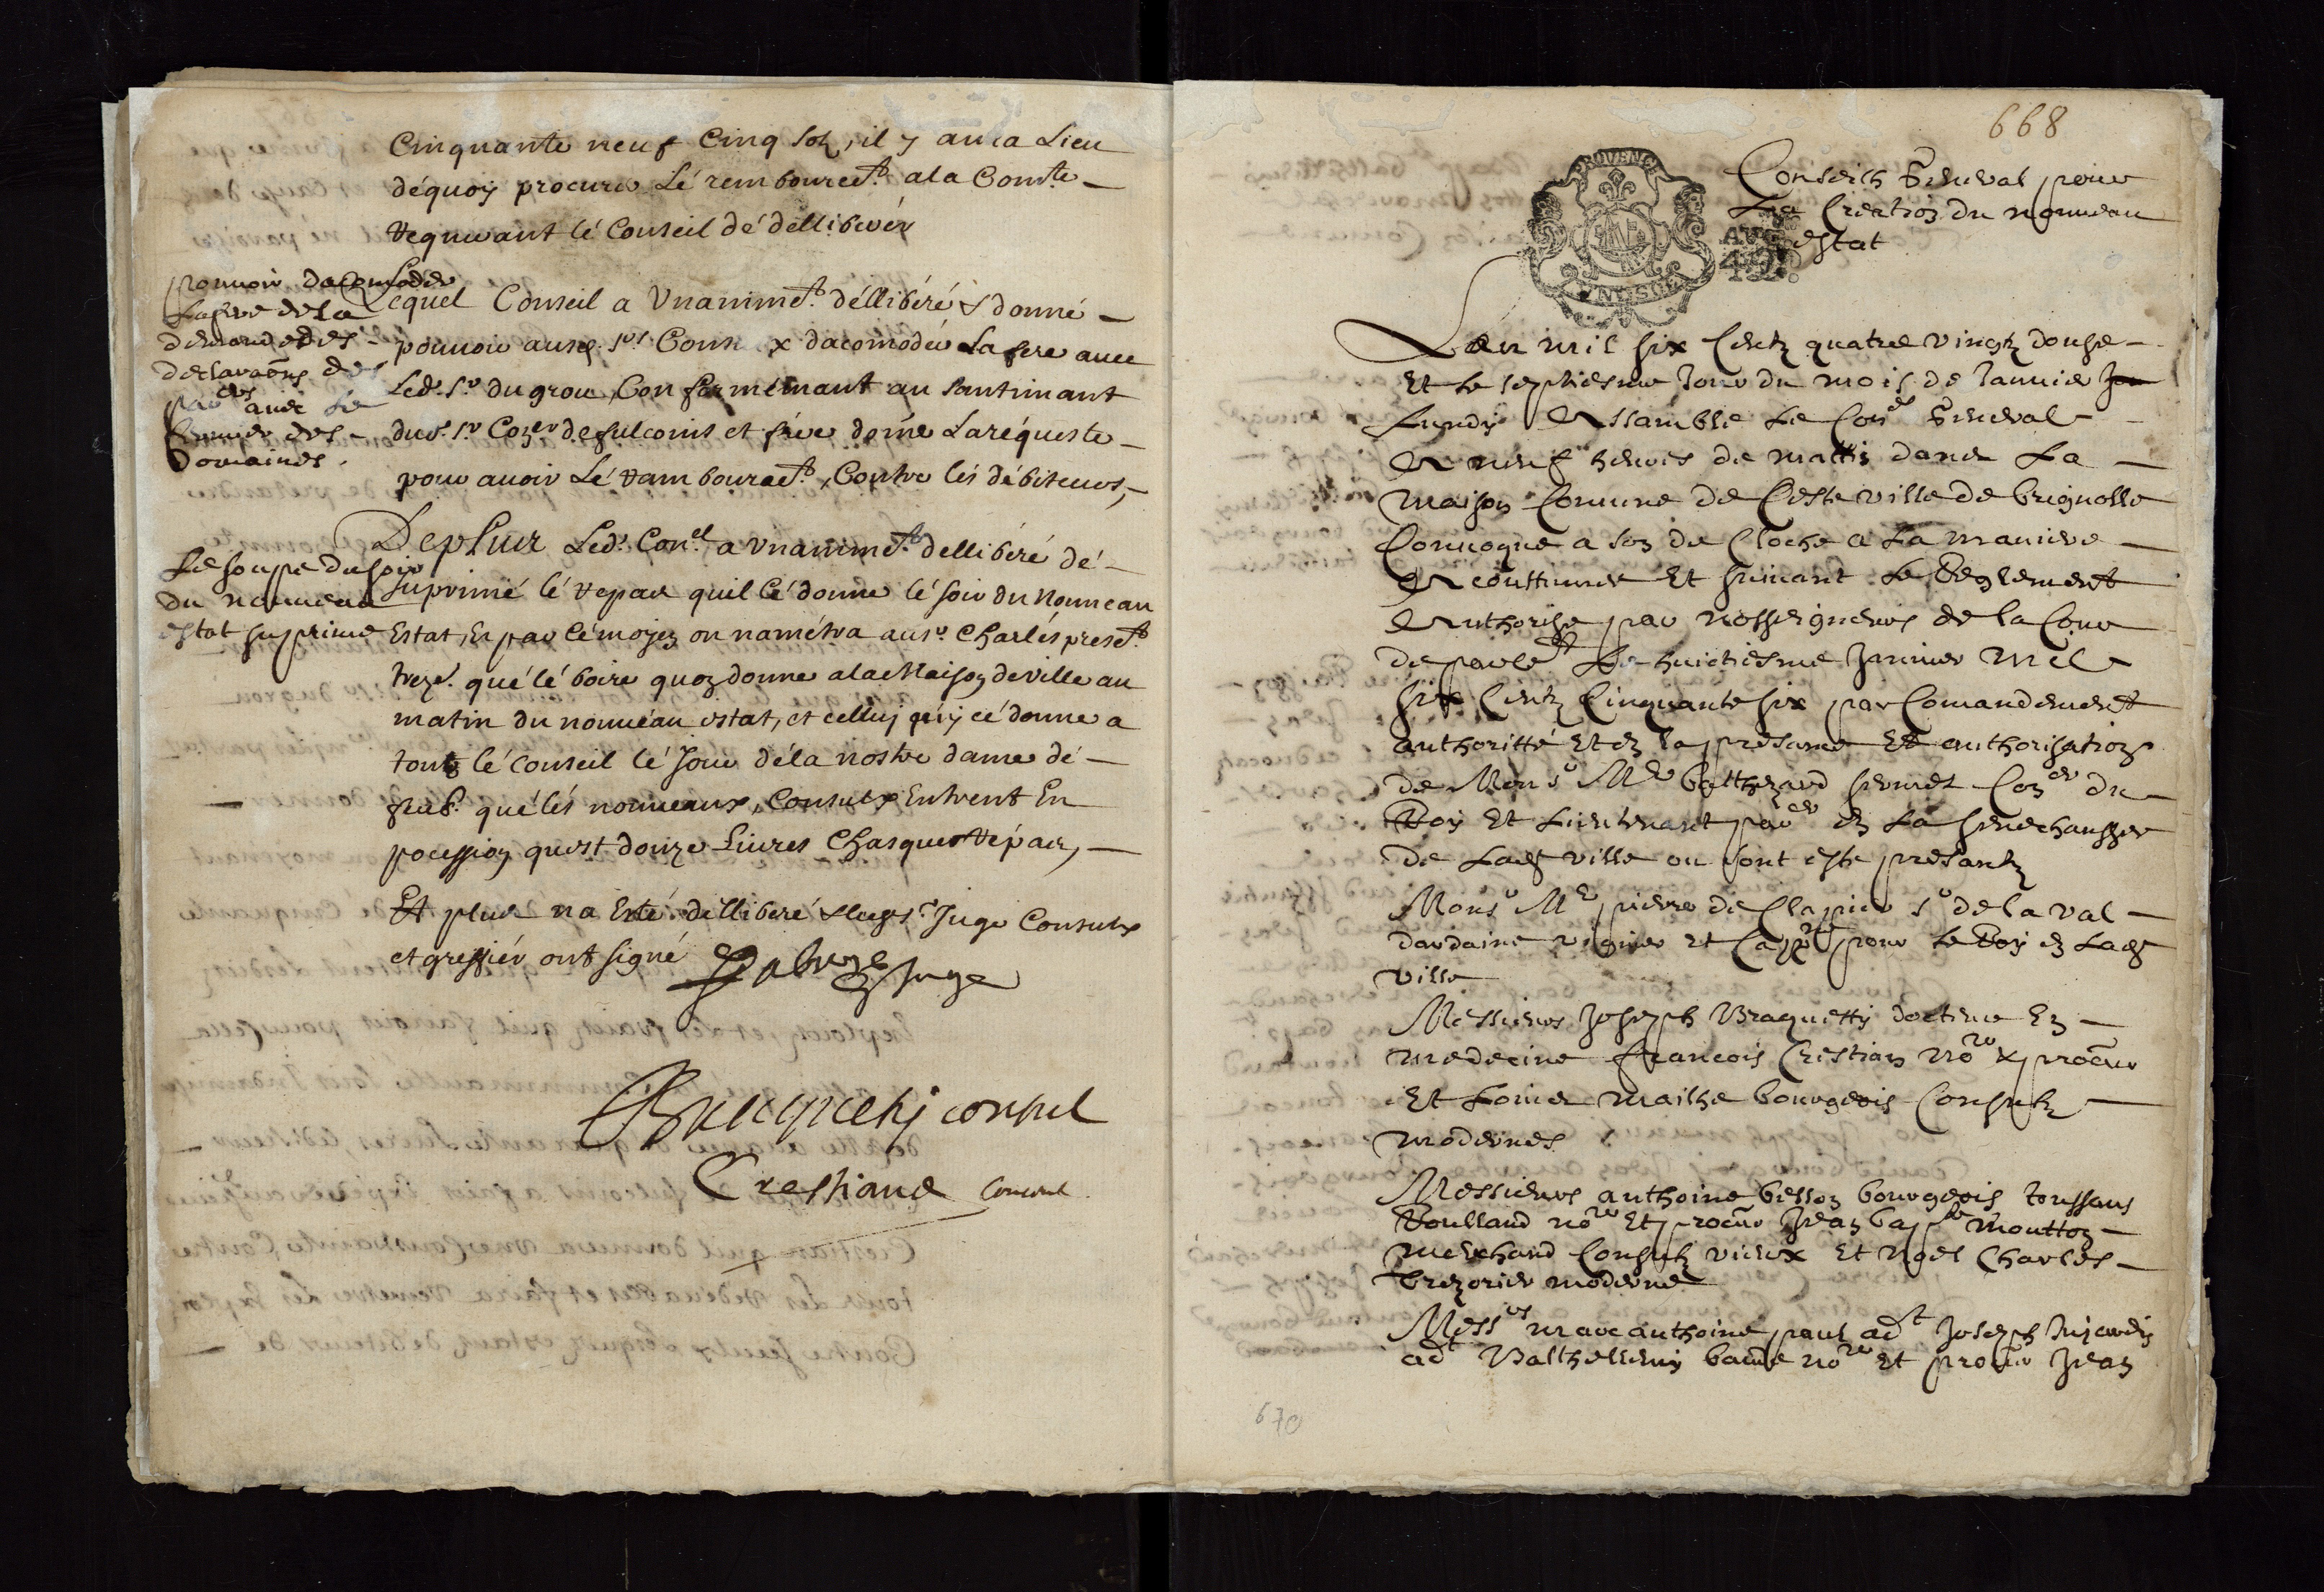 Cinquante neuf Cinq solz, il y aura Lieu
déquoy procurer Lé rembourcet. ala Comte.
requerant lé Conseil dé dellibérér
pouvoir dacomoder
lafere de la
demande des
desclarãons des
avec le
fermier des
domaines.
Lequel Conseil a Unanimet. déllibéré & donné
pouvoir ausd. srs Consulx dacomoder Lafere avec
Led. sr. du grou, Conformémant au santimant
dud. sr Coner de fulconis et sera doné Laréqueste
pour avoir Lé rambourcet., Contre lés débiteurs,
Le soupe du soir
du nouveau
estat suprime
De plus Led. Conel a unanimet. dellibéré dé
suprimé lé repas quil cé donne lé soir du Nouveau
Estat, Et par cé moyen on namétra au sr. Charlés preset.
trezr. qué lé boire quon donne ala Maison de ville au
matin du nouvéau estat, et celluy qui cé donne a
tout lé Conseil lé jour déla nostre dame dé
qué lés nouveaux Consulx Entrent En
pocession quest douze Livres Chasque répas,
Et plus na Esté dellibéré & Juge Consulx
et greffiér ont signé
Juge
Braquety consul
Crestiane Consul
668
Conseilh General pour
La Creation du nouveau
estat
PROVENCE
Lan mil six Centz quatre vingtz douse
Et le septiesme Jour du mois de Janvier
Lundy Assamblé Le Conel General
A neuf heures de mattin dans La
Maison Comune de Ceste ville de brignolle
Convoqué a son de Cloche a La maniere
Acoustumee Et suivant Le Reglement
Authorisé par nosseigneurs de la Cour
de parlet Le huictiesme Janvier mil
six Centz Cinquante six par Comandement
authoritté Et en la presance Et authorisation
de Monsr Me balthezard Coner du
Roy Et Lieutenant per en La senechaussee
de Lad. ville ou sont este presantz
Monsr Me pierre de Clapier sr de la val
dardaine viguier et Cappne pour Le Roy en Lad.
ville
Messieurs Joseph Braquetty docteur En
medecine francois Crestian nore & procur
Et Louis Mailhe bourgeois Consulz
modernes
Messieurs anthoine besson bourgeois toussans
Roulland nore Et procur Jean bapte Moutton
Marchand Consulz vieux Et Noel Charles
trezorier moderne
Messrs marc anthoine paul adt Joseph
adt Balthellemy nore Et procur Jean
670